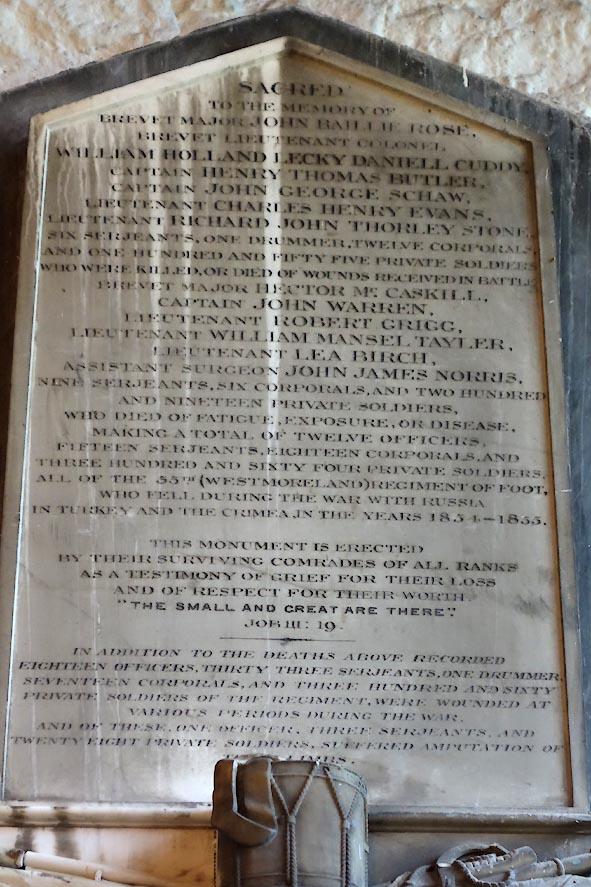 SACRED
TO THE MEMORY OF
BREVET MAJOR JOHN BAILLIE ROSE,
BREVET LIEUTENANT COLONEL
WILLIAM HOLLAND LECKY DANIELL CUDDY,
CAPTAIN HENRY THOMAS BUTLER,
CAPTAIN JOHN GEORGE SCHAW,
LIEUTENANT CHARLES HENRY EVANS,
LIEUTENANT RICHARD JOHN THORLEY STONE,
SIX SERJEANTS, ONE DRUMMER, TWELVE CORPORALS,
AND ONE HUNDRED AND FIFTY FIVE PRIVATE SOLDIERS
WHO WERE KILLED, OR DIED OF WOUNDS RECEIVED IN BATTLE
BREVET MAJOR HECTOR Mc CASKILL,
CAPTAIN JOHN WARREN,
LIEUTENANT ROBERT GRIGG,
LIEUTENANT WILLIAM MANSEL TAYLER,
LIEUTENANT LEA BIRCH,
ASSISTANT SURGEON JOHN JAMES NORRIS,
NINE SERJEANTS, SIX CORPORALS, AND TWO HUNDRED
AND NINETEEN PRIVATE SOLDIERS,
WHO DIED OF FATIGUE, EXPOSURE, OR DISEASE,
MAKING A TOTAL OF TWELVE OFFICERS,
FIFTEEN SERJEANTS, EIGHTEEN CORPORALS, AND
THREE HUNDRED AND SIXTY FOUR PRIVATE SOLDIERS,
ALL OF THE 55TH (WESTMORELAND) REGIMENT OF FOOT,
WHO FELL DURING THE WAR WITH RUSSIA
IN TURKEY AND THE CRIMEA, IN THE YEARS 1854-1855.
THIS MONUMENT IS ERECTED
BY THEIR SURVIVING COMRADES OF ALL RANKS
AS A TESTIMONY OF GRIEF FOR THEIR LOSS
AND OF RESPECT FOR THEIR WORTH.
"THE SMALL AND GREAT ARE THERE".
JOB III: 19.
IN ADDITION TO THE DEATHS ABOVE RECORDED
EIGHTEEN OFFICERS, THIRTY THREE SERJEANTS, ONE DRUMMER,
SEVENTEEN CORPORALS, AND THREE HUNDRED AND SIXTY
PRIVATE SOLDIERS OF THE REGIMENT, WERE WOUNDED AT
VARIOUS PERIODS DURING THE WAR.
AND OF THESE, ONE OFFICER, THREE SERJEANTS, AND
TWENTY EIGHT PRIVATE SOLDIERS, SUFFERED AMPUTATION OF
LIMBS.